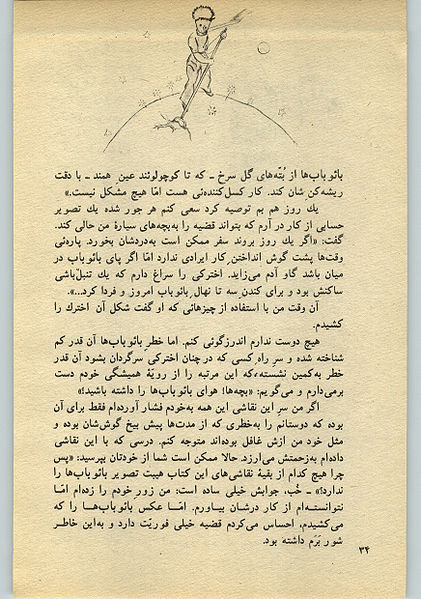 بائوباب‌ها از بُتّه‌های گل سرخ ـ که تا کوچولوئند عینِ همند ـ با دقت
ریشه‌کن‌ِشان کند. کار کسل‌کننده‌ئی هست امّا هیچ مشکل نیست.»
یك روز هم بم توصیه کرد سعی کنم هر جور شده یك تصویر
حسابی از کار در آرم که بتواند قضیه را به‌بچه‌های سیارهٔ من حالی کند.
گفت: «اگر یك روز بروند سفر ممکن است به‌دردشان بخورد. پاره‌ئی
وقت‌ها پشت گوش انداختنِ کار ایرادی ندارد امّا اگر پای بائوباب در
میان باشد گاو آدم می‌زاید. اخترکی را سراغ دارم که یك تنبل‌باشی
ساکنش بود و برای کندن سه تا نهال بائوباب امروز و فردا کرد...».
آن وقت من با استفاده از چیزهائی که او گفت شکل آن اخترك را
کشیدم.
هیچ دوست ندارم اندرزگوئی کنم. اما خطر بائوباب‌ها آن قدر کم
شناخته شده و سرِ راهِ کسی که در چنان اخترکی سرگردان بشود آن قدر
خطر به‌کمین نشسته، که این مرتبه را از رویهٔ همیشگی خودم دست
برمی‌دارم و می‌گویم: «بچه‌ها! هوای بائوباب‌ها را داشته باشید!»
اگر من سرِ این نقاشی این همه به‌خودم فشار آورده‌ام فقط برای آن
بوده که دوستانم را به‌خطری که از مدت‌ها پیش بیخ گوش‌شان بوده و
مثل خود من ازش غافل بوده‌اند متوجه کنم. درسی که با این نقاشی
داده‌ام به‌زحمتش می‌ارزد. حالا ممکن است شما از خودتان بپرسید: «پس
چرا هیچ کدام از بقیهٔ نقاشی‌های این کتاب هیبت تصویر بائوباب‌ها را
ندارد؟» ـ خُب، جوابش خیلی ساده است: من زورِ خودم را زده‌ام امّا
نتوانسته‌ام از کار درشان بیاورم. امّا عکس بائوباب‌ها را که
می‌کشیدم، احساس می‌کردم قضیه خیلی فوریّت دارد و به‌این خاطر
شور بَرَم داشته بود.
۳۴